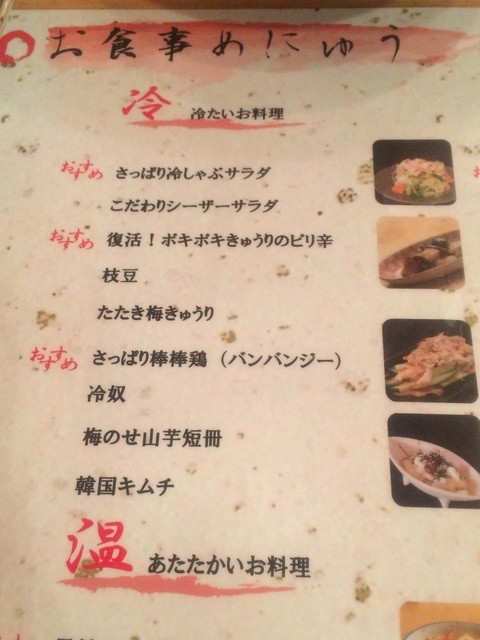 お食事めにゅう
冷 冷たいお料理
おすすめ さっぱり冷しゃぶサラダ
こだわりシーザーサラダ
おすすめ 復活！ボキボキきゅうりのピリ辛
枝豆
たたき梅きゅうり
おすすめ さっぱり棒棒鶏（バンバンジー）
冷奴
梅のせ山芋短冊
韓国キムチ
温 あたたかいお料理